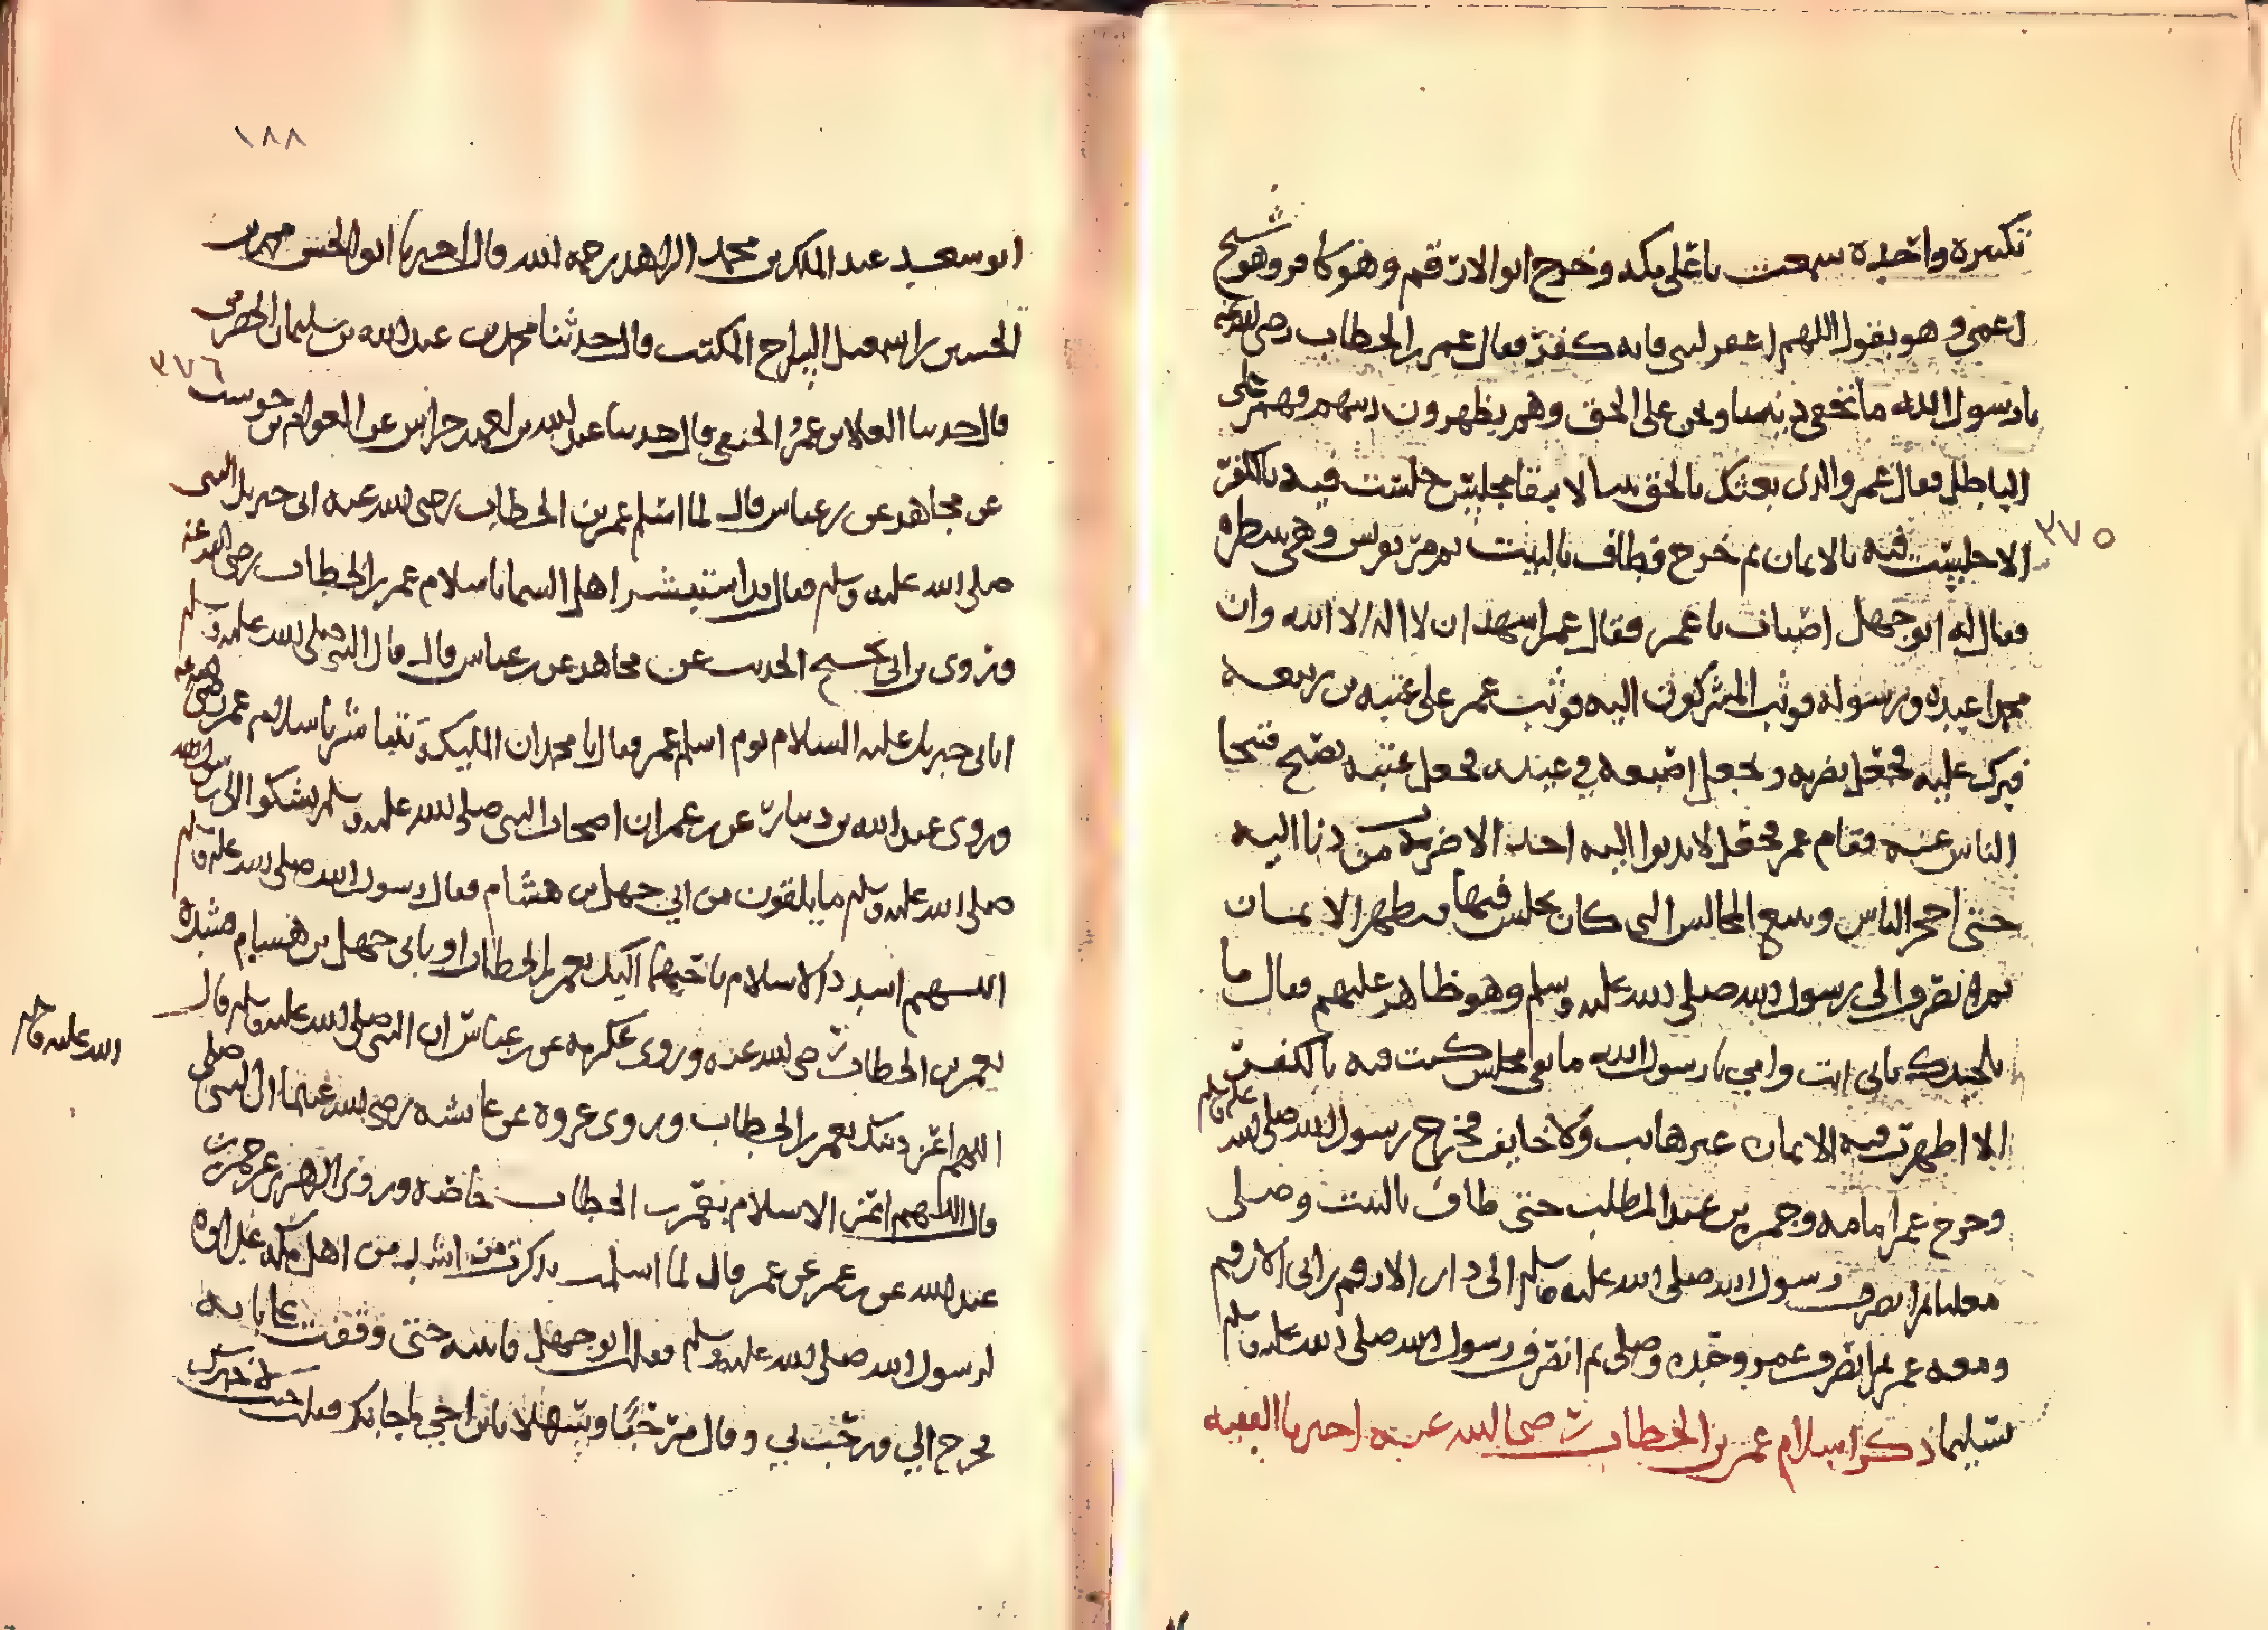 تكبيرة واحدة سمعت باعلى مكة وخرج ابو الارقم وهو كافر وهو شيخ
اعمى وهو يقول اللهم اغفر لبني فانه كفر فقال عمر بن الخطاب رضي الله عنه
يا رسول الله ما نخفي ديننا ونحن على الحق وهم يظهرون دينهم وهم على
الباطل فقال عمر والذي بعثك بالحق نبيا لا يبقا مجلس جلست فيه بالكفر
٣٧٥
الا جلست فيه بالايمان ثم خرج فطاف بالبيت ثم مر بقريش وهي تنتظره
فقال له ابو جهل اصبات يا عمر فقال عمر اشهد ان لا اله الا الله وان
محمدا عبده ورسوله فوثب المشركون اليه فوثب عمر على عتبه بن ربيعه
فبرك عليه فجعل يضربه وجعل اصبعه في عينيه فجعل عتبه يصيح فتنحا
الناس عنه فقام عمر فجعل لا يدنوا اليه احد الا ضربه من دنا اليه
حتى احجم الناس وتتبع المجالس التي كان يجلس فيها فيظهر الايمان
ثم انصرف الى رسول الله صلى الله عليه وسلم وهو ظاهر عليهم فقال ما
يجلسك بابي انت وامي يا رسول الله ما بقي مجلس كنت فيه بالكفر
الا اظهرت فيه الايمان غير هايب ولا خايف فخرج رسول الله صلى الله عليه وسلم
وخرج عمر امامه وحمزه بن عبد المطلب حتى طاف بالبيت وصلى
معلنا ثم انصرف رسول الله صلى الله عليه وسلم الى دار الارقم بن ابي الارقم
ومعه عمر ثم انصرف عمر وحده وصلى ثم انصرف رسول الله صلى الله عليه وسلم
تسليما ذكر اسلام عمر بن الخطاب رضي الله عنه اخبرنا الفقيه
١٨٨
ابو سعيد عبد الملك بن محمد الزاهد رحمه الله قال اخبرنا ابو الحسن محمد بن
الحسين بن اسمعيل السراج المكتب قال حدثنا محمد بن عبد الله بن سليمان الحضرمي
٣٧٦
قال حدثنا العلا بن عمرو الحنفي قال حدثنا عبد الله بن احمد خراش عن العوام بن حوشب
عن مجاهد عن بن عباس قال لما اسلم عمر بن الخطاب رضي الله عنه اتى جبريل النبي
صلى الله عليه وسلم فقال قد استبشر اهل السما باسلام عمر بن الخطاب رضي الله عنه
وروى بن ابي نجيح الحديث عن مجاهد عن بن عباس قال قال النبي صلى الله عليه وسلم
اتاني جبريل عليه السلام يوم اسلم عمر فقال يا محمد ان المليكة تتباشر باسلام عمر رضي الله عنه
وروى عبد الله بن دينار عن بن عمر ان اصحاب النبي صلى الله عليه وسلم شكوا الى رسول الله
صلى الله عليه وسلم ما يلقون من ابي جهل بن هشام فقال رسول الله صلى الله عليه وسلم
اللهم اشدد الاسلام باحبهما اليك بعمر بن الخطاب او بابي جهل بن هشام فشده
بعمر بن الخطاب رضي الله عنه وروى عكرمه عن بن عباس ان النبي صلى الله عليه وسلم قال
اللهم اعز دينك بعمر بن الخطاب وروى عروة عن عايشه رضي الله عنهما ان النبي صلى
الله عليه وسلم
قال اللهم اعز الاسلام بعمر بن الخطاب خاصه وروى الزهري عن حمزة بن
عبد الله عن بن عمر عن عمر قال لما اسلمت تذكرت من اشد من اهل مكة عداوة
لرسول الله صلى الله عليه وسلم فقلت ابو جهل فاتيته حتى وقفت على بابه
فخرج الي فرحب بي وقال مرحبا وسهلا يا بن اختي ما جا بك فقلت جيت لاخبرك